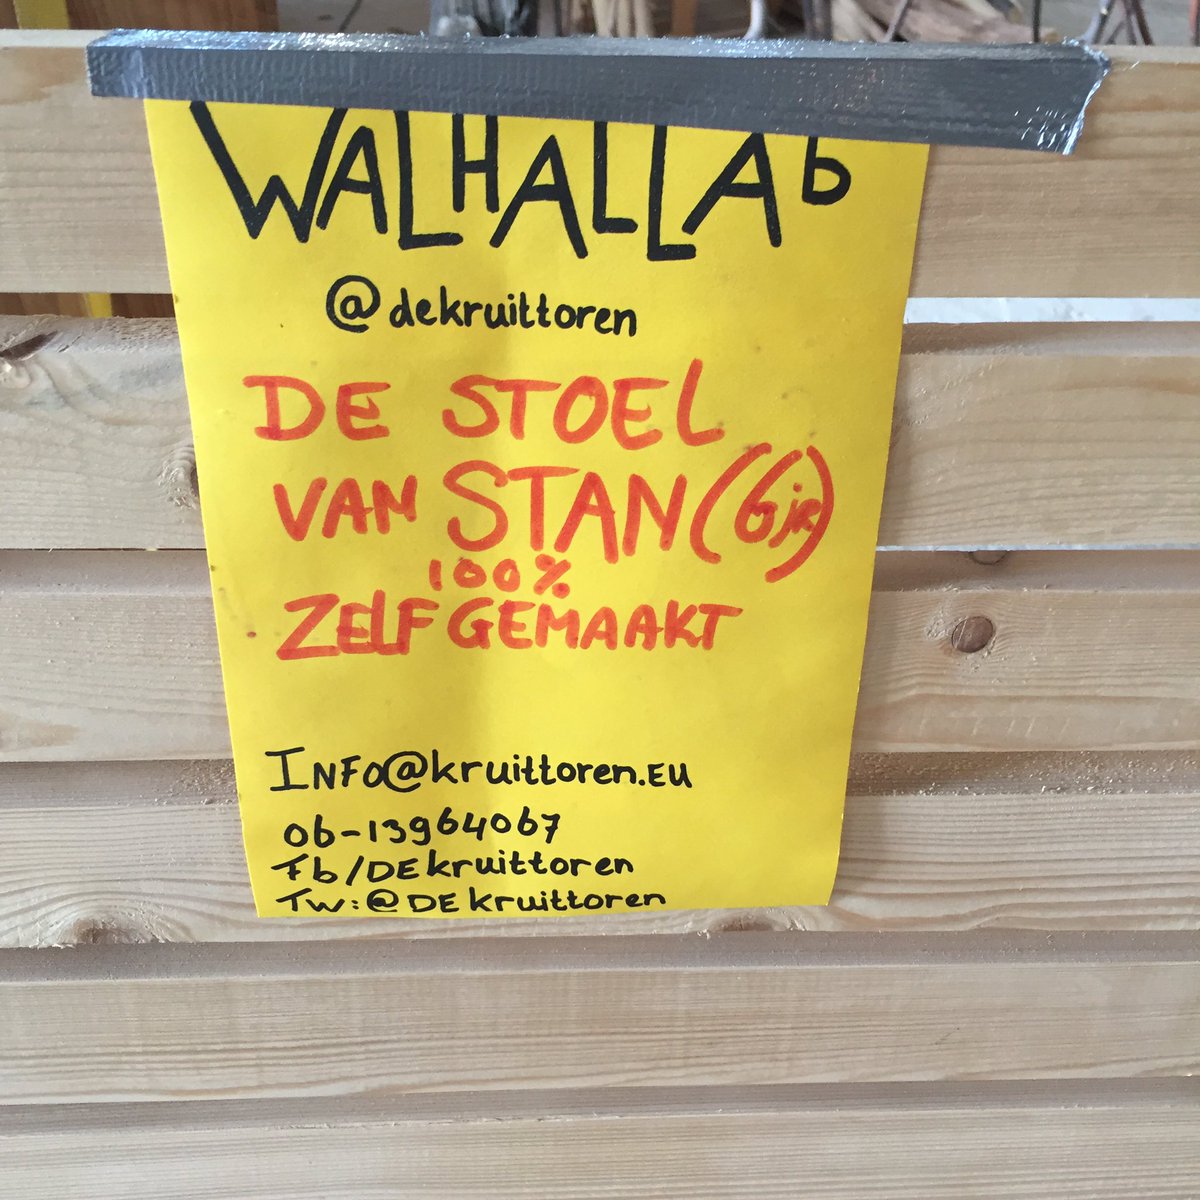 WALHALLAb
@dekruittoren
DE STOEL
VAN STAN (6jr)
100%
ZELFGEMAAKT
INFO@kruittoren.EU
06-13964067
Fb/DEkruittoren
TW:@DEkruittoren